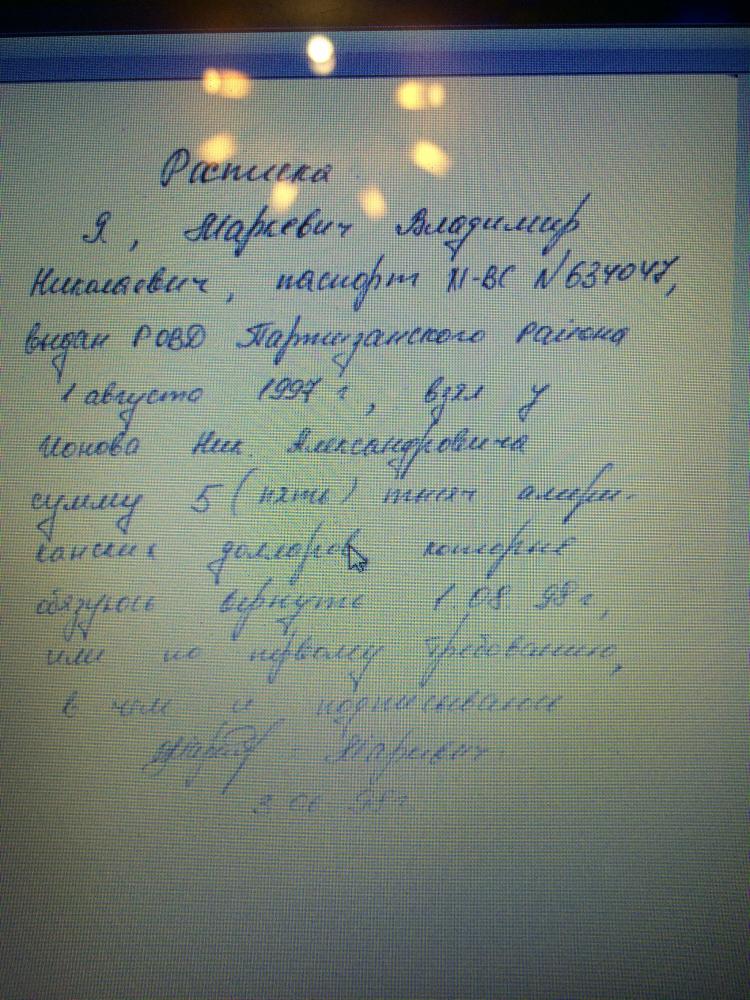 Расписка
Я, Маркевич Владимир
Николаевич, паспорт XI-ВС №634047,
выдан РОВД Партизанского района
1 августа 1997 г, взял у
Ионова Ник. Александровича
сумму 5 (пять) тысяч амери-
канских долларов которые
обязуюсь вернуть 1.08 98 г,
или по первому требованию,
в чем и подписываюсь
Маркевич
98 г